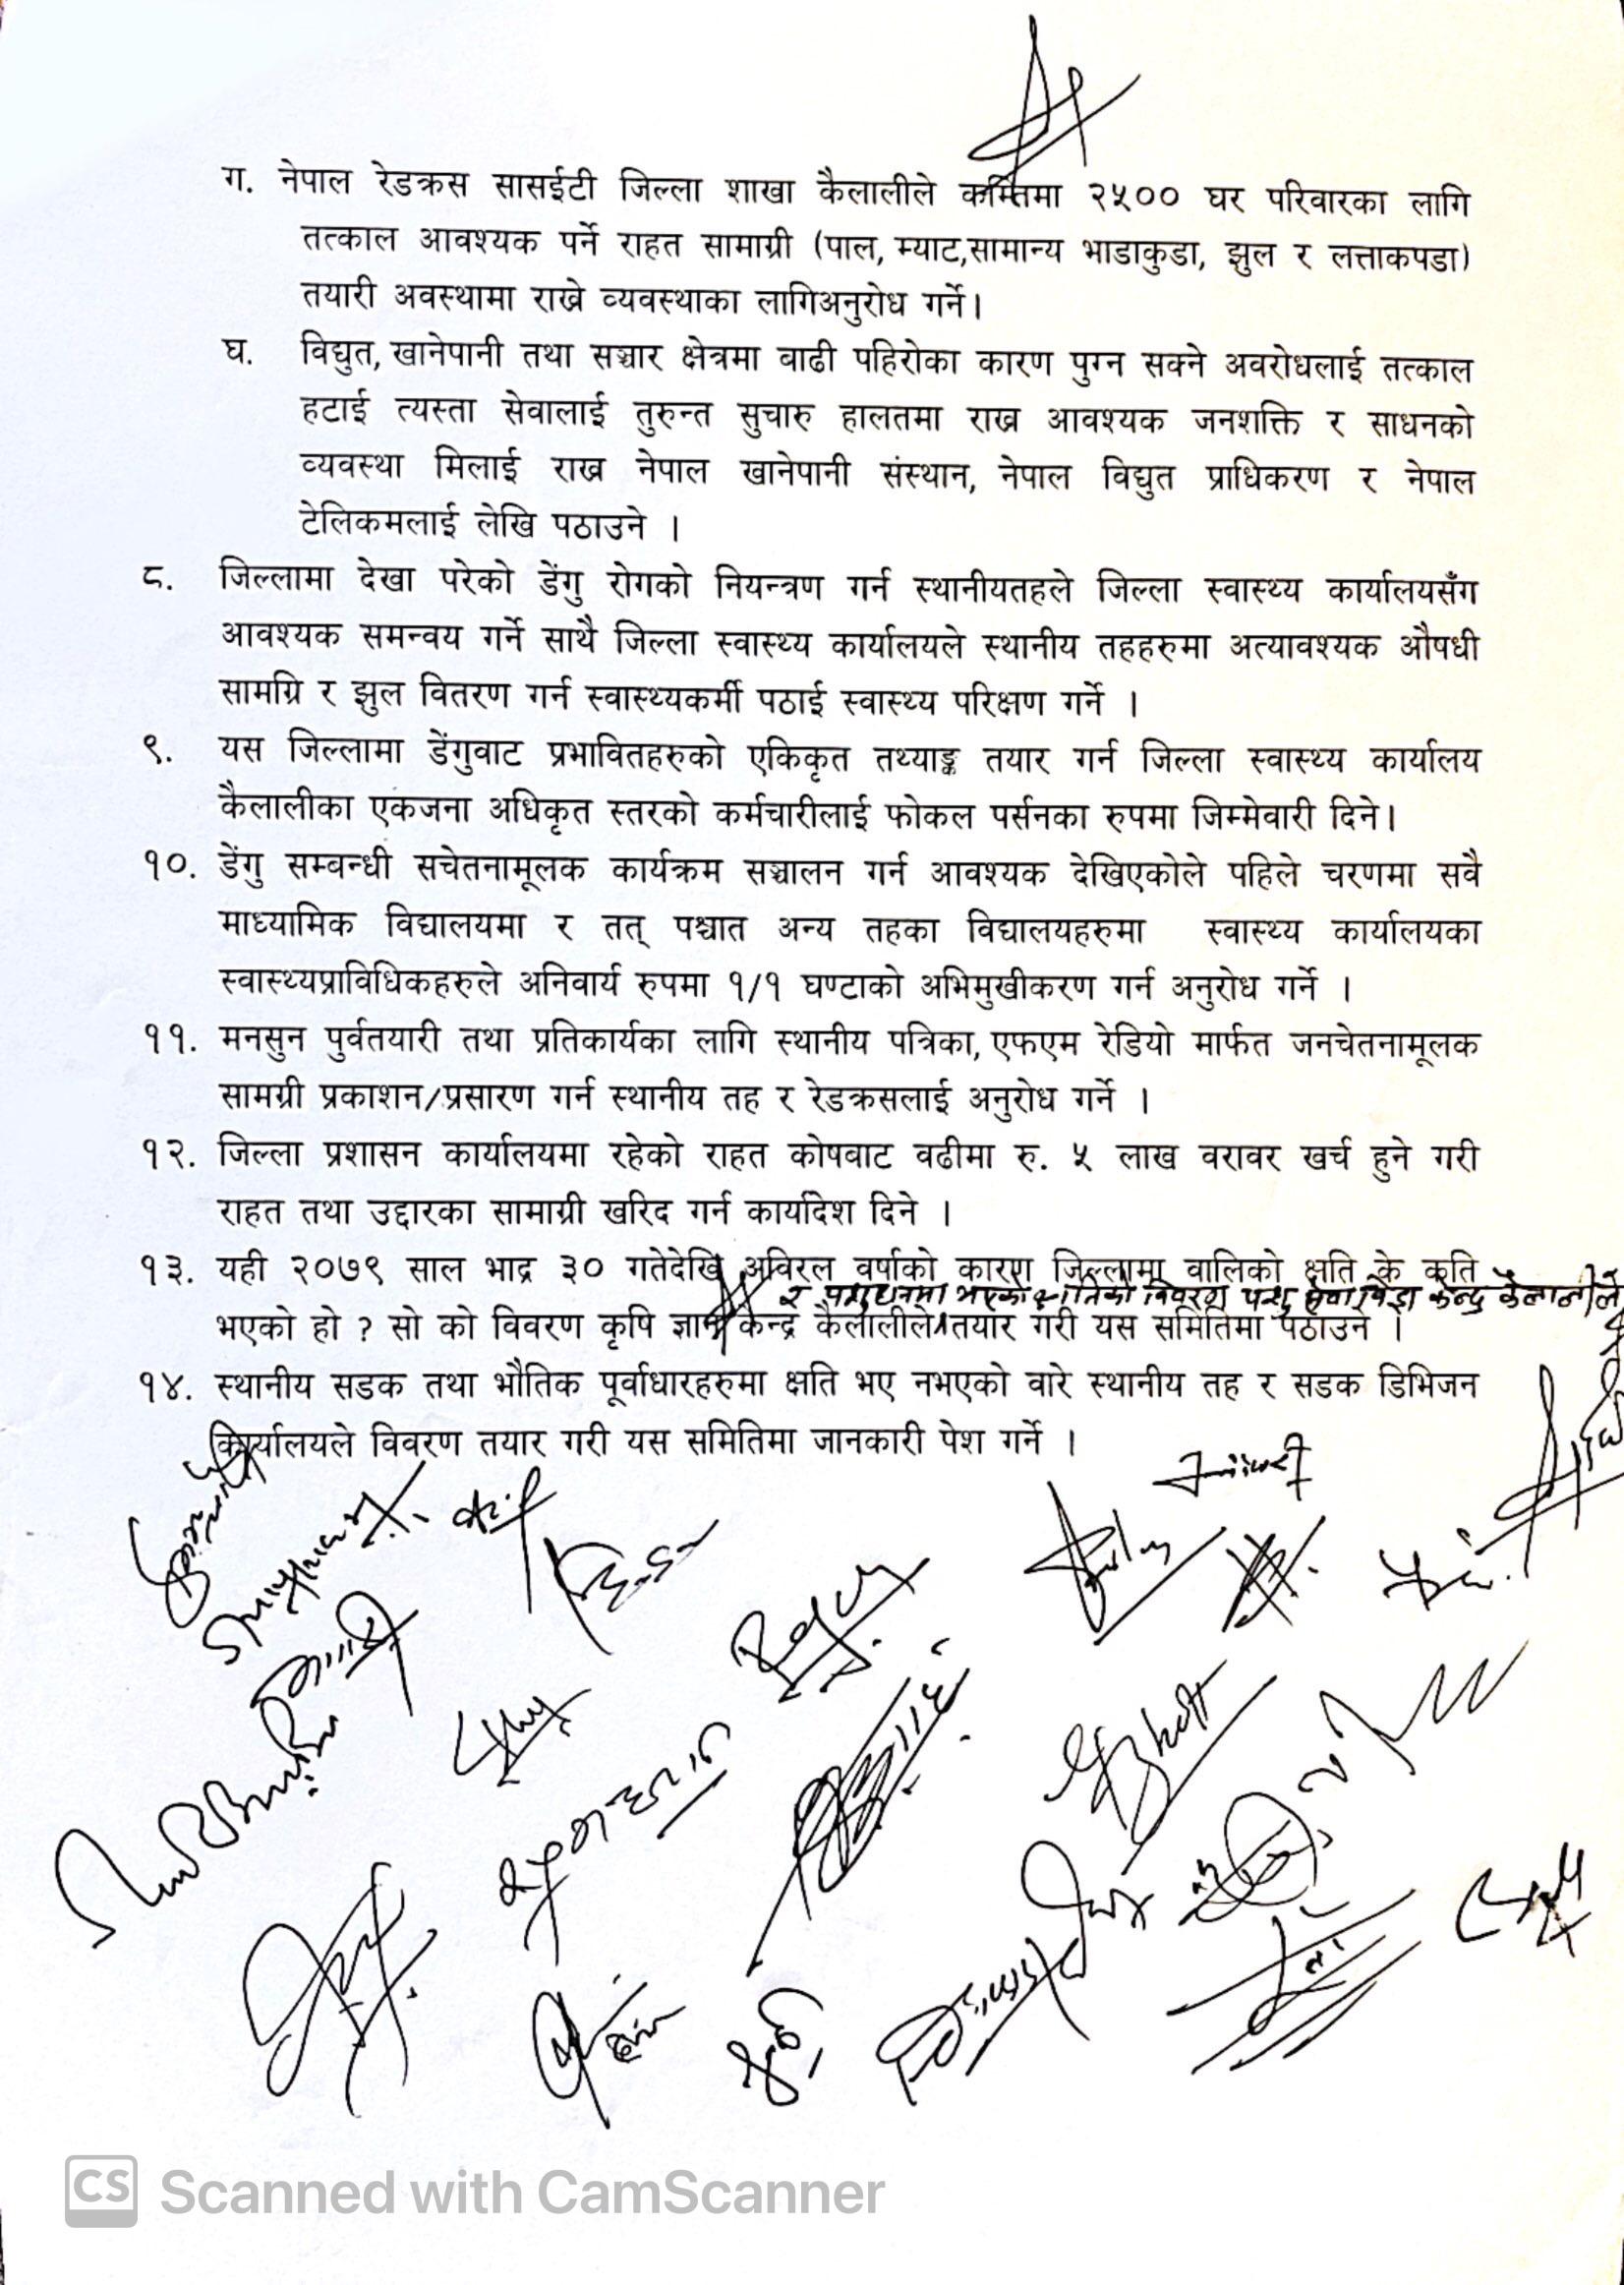 ग. नेपाल रेडक्रस सासईटी जिल्ला शाखा कैलालीले कम्तिमा २५०० घर परिवारका लागि
तत्काल आवश्यक पर्ने राहत सामाग्री (पाल, म्याट,सामान्य भाडाकुडा, झुल र लत्ताकपडा)
तयारी अवस्थामा राख्ने व्यवस्थाका लागिअनुरोध गर्ने।
घ. विद्युत, खानेपानी तथा सञ्चार क्षेत्रमा बाढी पहिरोका कारण पुग्न सक्ने अवरोधलाई तत्काल
हटाई त्यस्ता सेवालाई तुरुन्त सुचारु हालतमा राख्न आवश्यक जनशक्ति र साधनको
व्यवस्था मिलाई राख्न नेपाल खानेपानी संस्थान, नेपाल विद्युत प्राधिकरण र नेपाल
टेलिकमलाई लेखि पठाउने ।
८. जिल्लामा देखा परेको डेंगु रोगको नियन्त्रण गर्न स्थानीयतहले जिल्ला स्वास्थ्य कार्यालयसँग
आवश्यक समन्वय गर्ने साथै जिल्ला स्वास्थ्य कार्यालयले स्थानीय तहहरुमा अत्यावश्यक औषधी
सामग्रि र झुल वितरण गर्न स्वास्थ्यकर्मी पठाई स्वास्थ्य परिक्षण गर्ने ।
९. यस जिल्लामा डेंगुवाट प्रभावितहरुको एकिकृत तथ्याङ्क तयार गर्न जिल्ला स्वास्थ्य कार्यालय
कैलालीका एकजना अधिकृत स्तरको कर्मचारीलाई फोकल पर्सनका रुपमा जिम्मेवारी दिने।
१०. डेंगु सम्बन्धी सचेतनामूलक कार्यक्रम सञ्चालन गर्न आवश्यक देखिएकोले पहिले चरणमा सवै
माध्यामिक विद्यालयमा र तत् पश्चात अन्य तहका विद्यालयहरुमा स्वास्थ्य कार्यालयका
स्वास्थ्यप्राविधिकहरुले अनिवार्य रुपमा १/१ घण्टाको अभिमुखीकरण गर्न अनुरोध गर्ने ।
११. मनसुन पुर्वतयारी तथा प्रतिकार्यका लागि स्थानीय पत्रिका, एफएम रेडियो मार्फत जनचेतनामूलक
सामग्री प्रकाशन/प्रसारण गर्न स्थानीय तह र रेडक्रसलाई अनुरोध गर्ने ।
१२. जिल्ला प्रशासन कार्यालयमा रहेको राहत कोषबाट वढीमा रु. ५ लाख वरावर खर्च हुने गरी
राहत तथा उद्दारका सामाग्री खरिद गर्न कार्यादेश दिने ।
१३. यही २०७९ साल भाद्र ३० गतेदेखि अविरल वर्षाको कारण जिल्लामा वालिको क्षति के कति
र पशुधनमा भएको क्षतिको विवरण पशु सेवा विज्ञ केन्द्र कैलालीले
भएको हो ? सो को विवरण कृषि ज्ञान केन्द्र कैलालीले तयार गरी यस समितिमा पठाउने ।
१४. स्थानीय सडक तथा भौतिक पूर्वाधारहरुमा क्षति भए नभएको वारे स्थानीय तह र सडक डिभिजन
कार्यालयले विवरण तयार गरी यस समितिमा जानकारी पेश गर्ने ।
CS Scanned with CamScanner